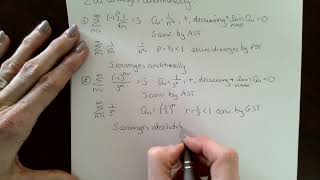 converges conditionally
① ∑ (-1)ⁿ 1/√n = S aₙ = 1/√n +, decreasing & lim aₙ = 0
S conv. by AST
∑ 1/√n P = ½ < 1 series diverges by PST
S converges conditionally
= S aₙ = 1/3ⁿ +, decreasing & lim aₙ = 0
S conv by AST
∑ 1/3ⁿ aₙ = (1/3)ⁿ r = 1/3 < 1 conv. by GST
S converges absolut